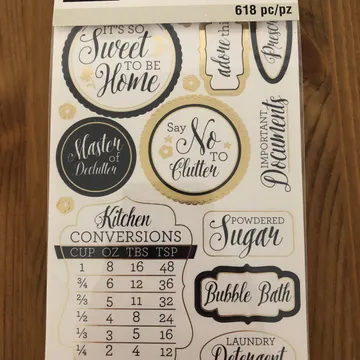 618 pc/pz
IT'S SO
Sweet
TO BE
Home
adore this
Preser
Master
of
Declutter
Say
No
TO
Clutter
IMPORTANT
Documents
Kitchen
CONVERSIONS
CUP OZ TBS TSP
1 8 16 48
¾ 6 12 36
⅔ 5 11 32
½ 4 8 24
⅓ 3 5 16
¼ 2 4 12
POWDERED
Sugar
Bubble Bath
LAUNDRY
Detergent